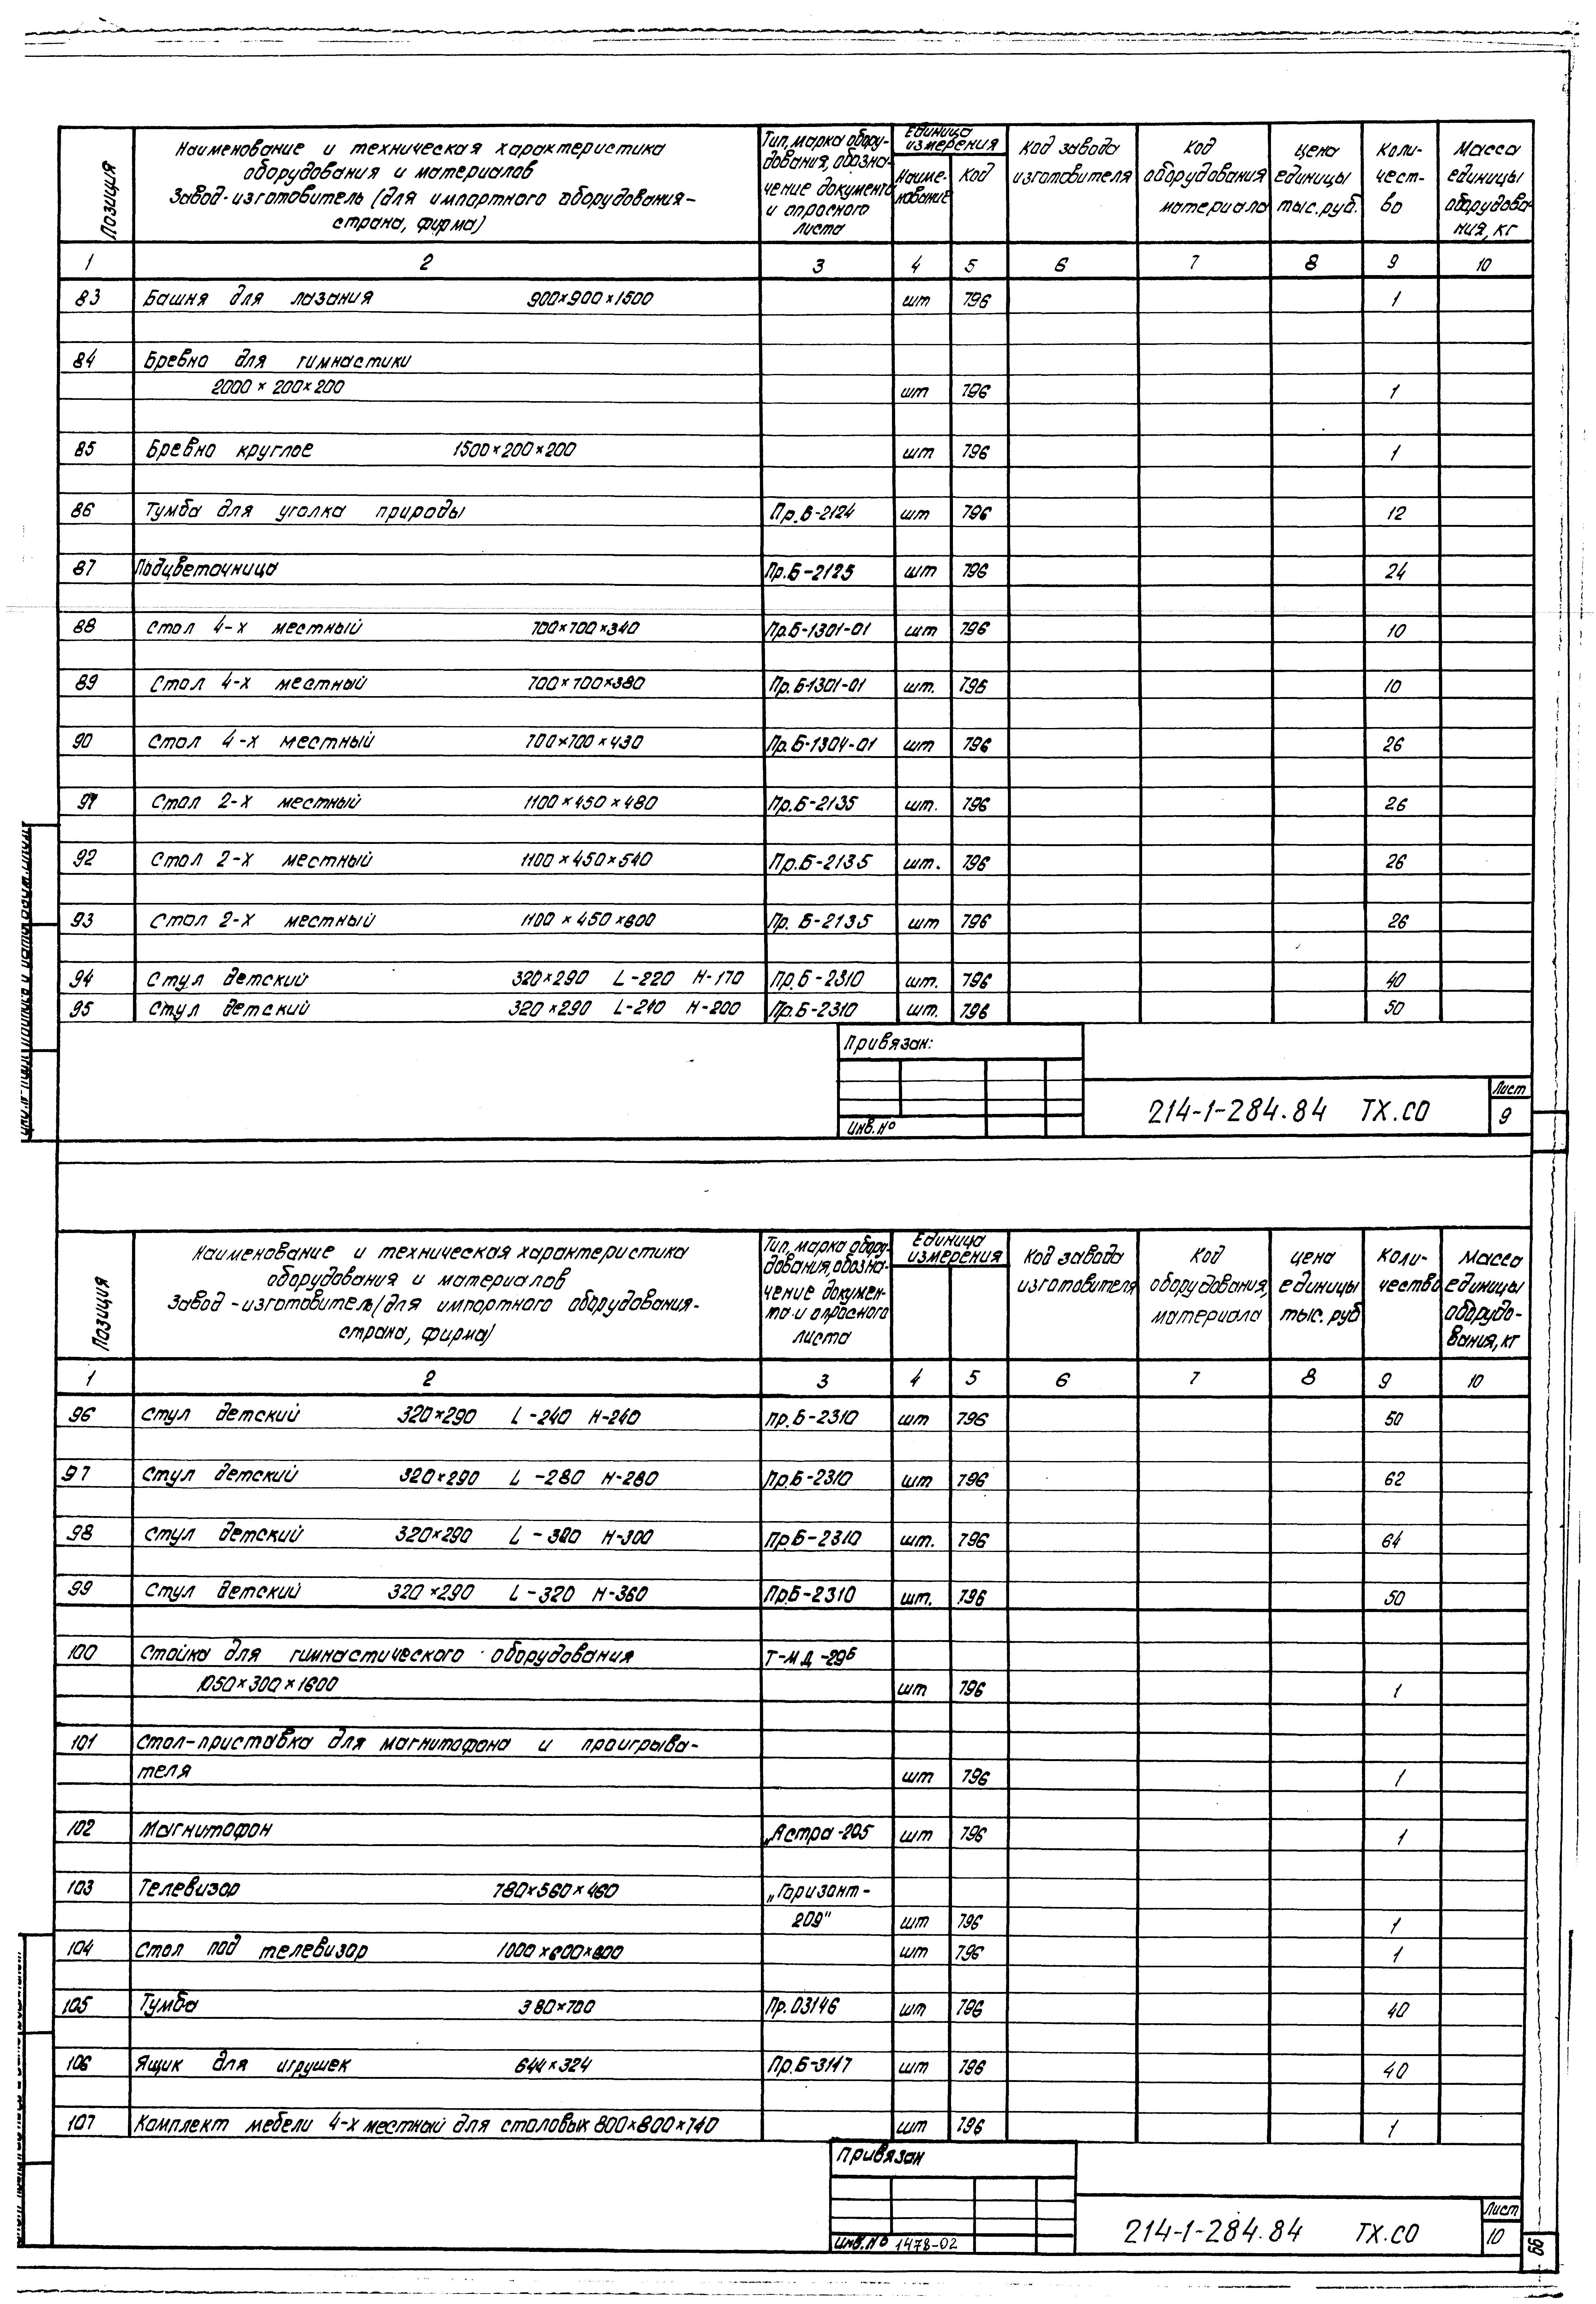 Позиция
Наименование и техническая характеристика
оборудования и материалов
Завод-изготовитель (для импортного оборудования-
страна, фирма)
Тип, марка обору-
дования, обозна-
чение документа
и опросного
листа
Единица
измерения
Наиме-
нование
Код
Код завода
изготовителя
Код
оборудования
материала
цена
единицы
тыс.руб.
Коли-
чест-
во
Масса
единицы
оборудова-
ния, кг
1 2 3 4 5 6 7 8 9 10
83 Башня для лазания 900×900×1500 шт 796 1
84 Бревно для гимнастики
2000×200×200 шт 796 1
85 Бревно круглое 1500×200×200 шт 796 1
86 Тумба для уголка природы Пр.Б-2124 шт 796 12
87 Подцветочница Пр.Б-2125 шт 796 24
88 Стол 4-х местный 700×700×340 Пр.Б-1301-01 шт 796 10
89 Стол 4-х местный 700×700×380 Пр.Б-1301-01 шт. 796 10
90 Стол 4-х местный 700×700×430 Пр.Б-1304-01 шт 796 26
91 Стол 2-х местный 1100×450×480 Пр.Б-2135 шт. 796 26
92 Стол 2-х местный 1100×450×540 Пр.Б-2135 шт. 796 26
93 Стол 2-х местный 1100×450×600 Пр. Б-2135 шт 796 26
94 Стул детский 320×290 L-220 H-170 Пр.Б-2310 шт. 796 40
95 Стул детский 320×290 L-240 H-200 Пр.Б-2310 шт. 796 50
Привязан:
Инв.№
214-1-284.84 ТХ.СО
Лист
9
Позиция
Наименование и техническая характеристика
оборудования и материалов
Завод-изготовитель (для импортного оборудования-
страна, фирма)
Тип, марка обору-
дования, обозна-
чение докумен-
та и опросного
листа
Единица
измерения
Код завода
изготовителя
Код
оборудования,
материала
цена
единицы
тыс.руб
Коли-
чество
Масса
единицы
оборудо-
вания, кг
1 2 3 4 5 6 7 8 9 10
96 Стул детский 320×290 L-240 H-240 Пр.Б-2310 шт 796 50
97 Стул детский 320×290 L-280 H-280 Пр.Б-2310 шт 796 62
98 Стул детский 320×290 L-320 H-300 Пр.Б-2310 шт. 796 64
99 Стул детский 320×290 L-320 H-360 Пр.Б-2310 шт. 796 50
100 Стойка для гимнастического оборудования Т-МД-296
1050×300×1600 шт 796 1
101 Стол-приставка для магнитофона и проигрыва-
теля шт 796 1
102 Магнитофон „Астра-205 шт 796 1
103 Телевизор 780×560×460 „Горизонт-
209" шт 796 1
104 Стол под телевизор 1000×600×600 шт 796 1
105 Тумба 380×700 Пр.03146 шт 796 40
106 Ящик для игрушек 644×324 Пр.Б-3147 шт 796 40
107 Комплект мебели 4-х местный для столовых 800×800×740 шт 796 1
Привязан
Инв.№ 1478-02
214-1-284.84 ТХ.СО
Лист
10
66